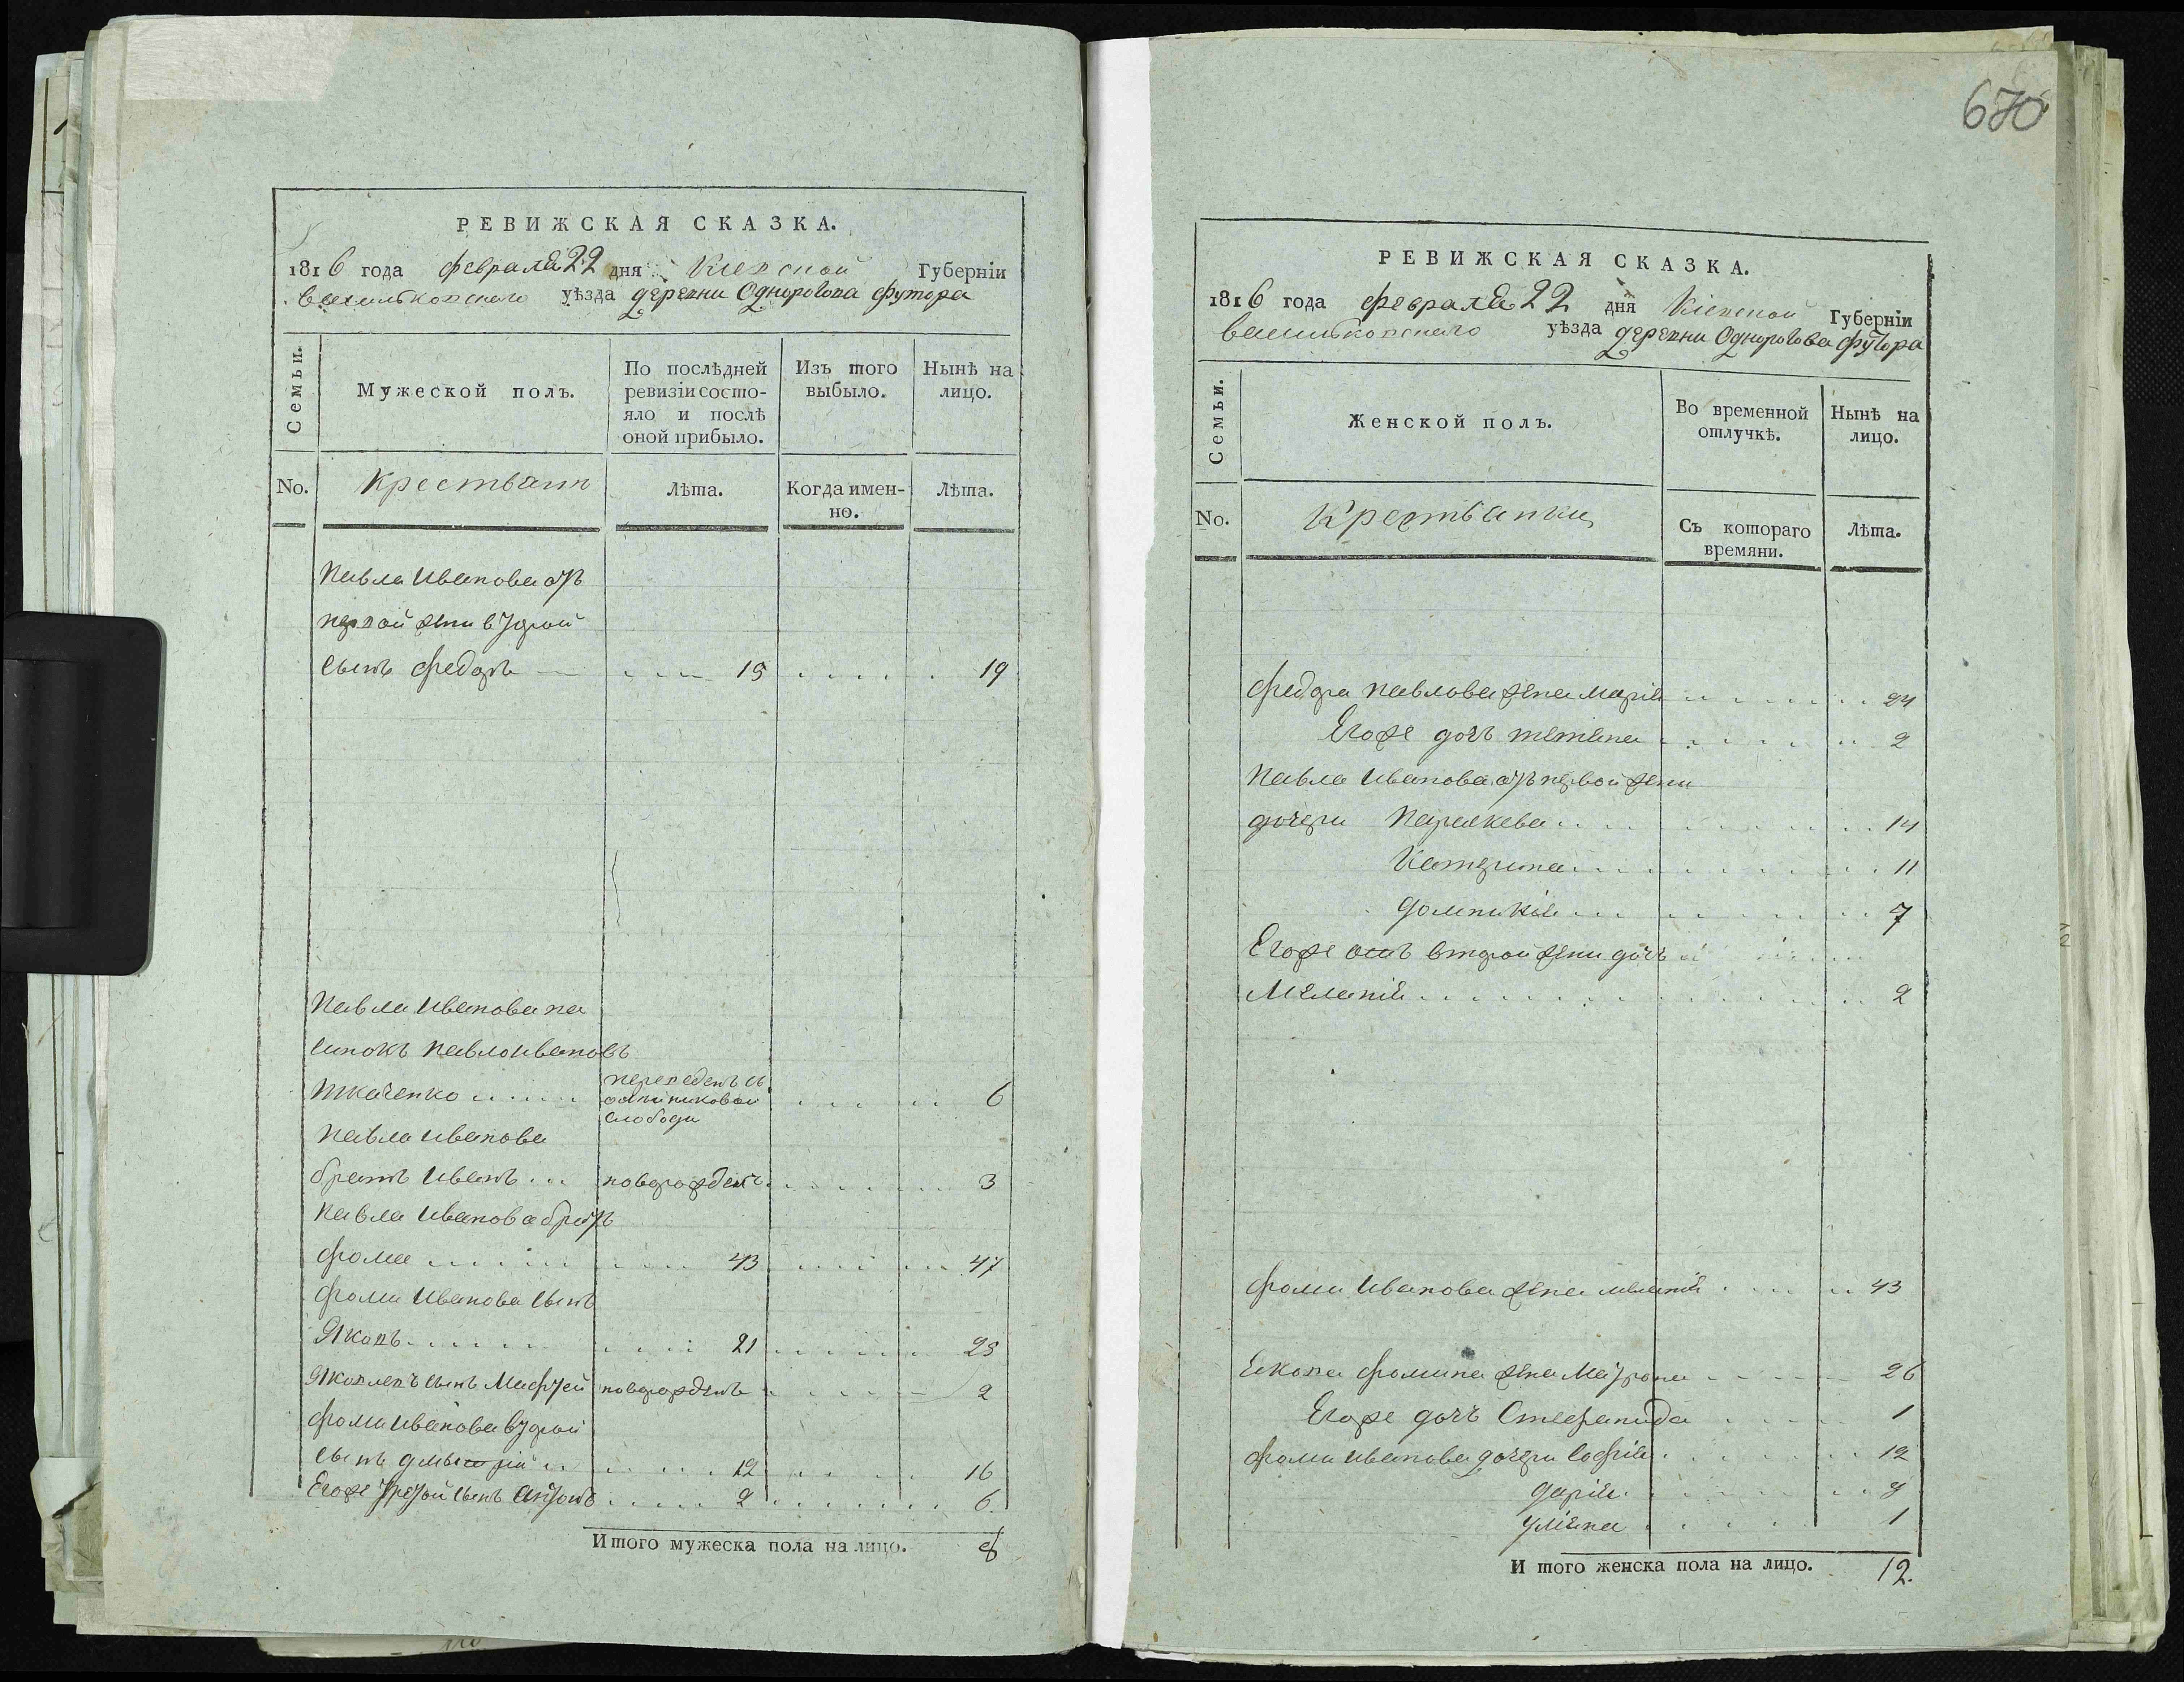 РЕВИЖСКАЯ СКАЗКА.
1816 года февраля 22 дня Киевской Губерніи
васильковского уѣзда деревни Однорогова футора
Семьи.
Мужеской полъ.
По послѣдней ревизіи состо-
яло и послѣ
оной прибыло.
Изъ того
выбыло.
Нынѣ на
лицо.
No.
Крестьянъ
Лѣта.
Когда имен-
но.
Лѣта.
Павла Иванова отъ
первой жени второй
сынъ Федоръ 15 19
Павла Иванова па
синокъ Павло Ивановъ
Ткаченко переведенъ
слободи 6
Павла Иванова
братъ Иванъ новорожденъ 3
Павла Иванова братъ
Фома 43 47
Фоми Иванова сынъ
Яковъ 21 25
Яковлевъ сынъ Матфей новорожденъ 2
Фоми Иванова второй
сынъ Дмытрій 12 16
Егоже третой сынъ Антонъ 2 6
Итого мужеска пола на лицо. 8
670
РЕВИЖСКАЯ СКАЗКА.
1816 года февраля 22 дня Кіевской Губерніи
васильковского уѣзда деревни Однорогова футора
Семьи.
Женской полъ.
Во временной
отлучкѣ.
Нынѣ на
лицо.
No.
Крестьянки
Съ котораго
времяни.
Лѣта.
Федора Павлова жена Марія 24
Егоже дочъ Тетяна 2
Павла Иванова отъ первой жени
дочери Параскева 14
Катерина 11
Домникія 7
Егоже отъ второй жени дочъ
Меланія 2
Фоми Иванова жена Меланія 43
Якова Фомина жена Матрона 26
Егоже дочъ Стефанида 1
Фоми Иванова дочери Софія 12
Дарія 8
Уліяна 1
И того женска пола на лицо. 12.